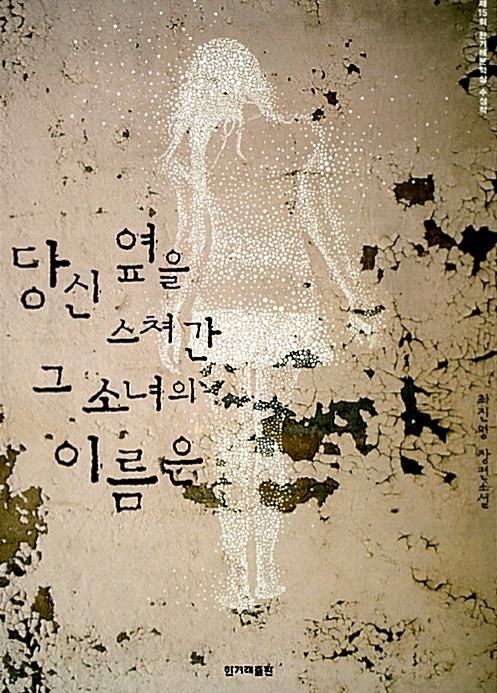 제15회 한겨레문학상 수상작
당신 옆을
스쳐간
그 소녀의
이름은
최진영 장편소설
한겨레출판